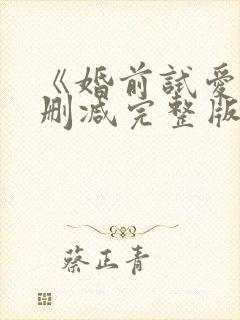 《婚前試愛
删减完整版
蔡正青